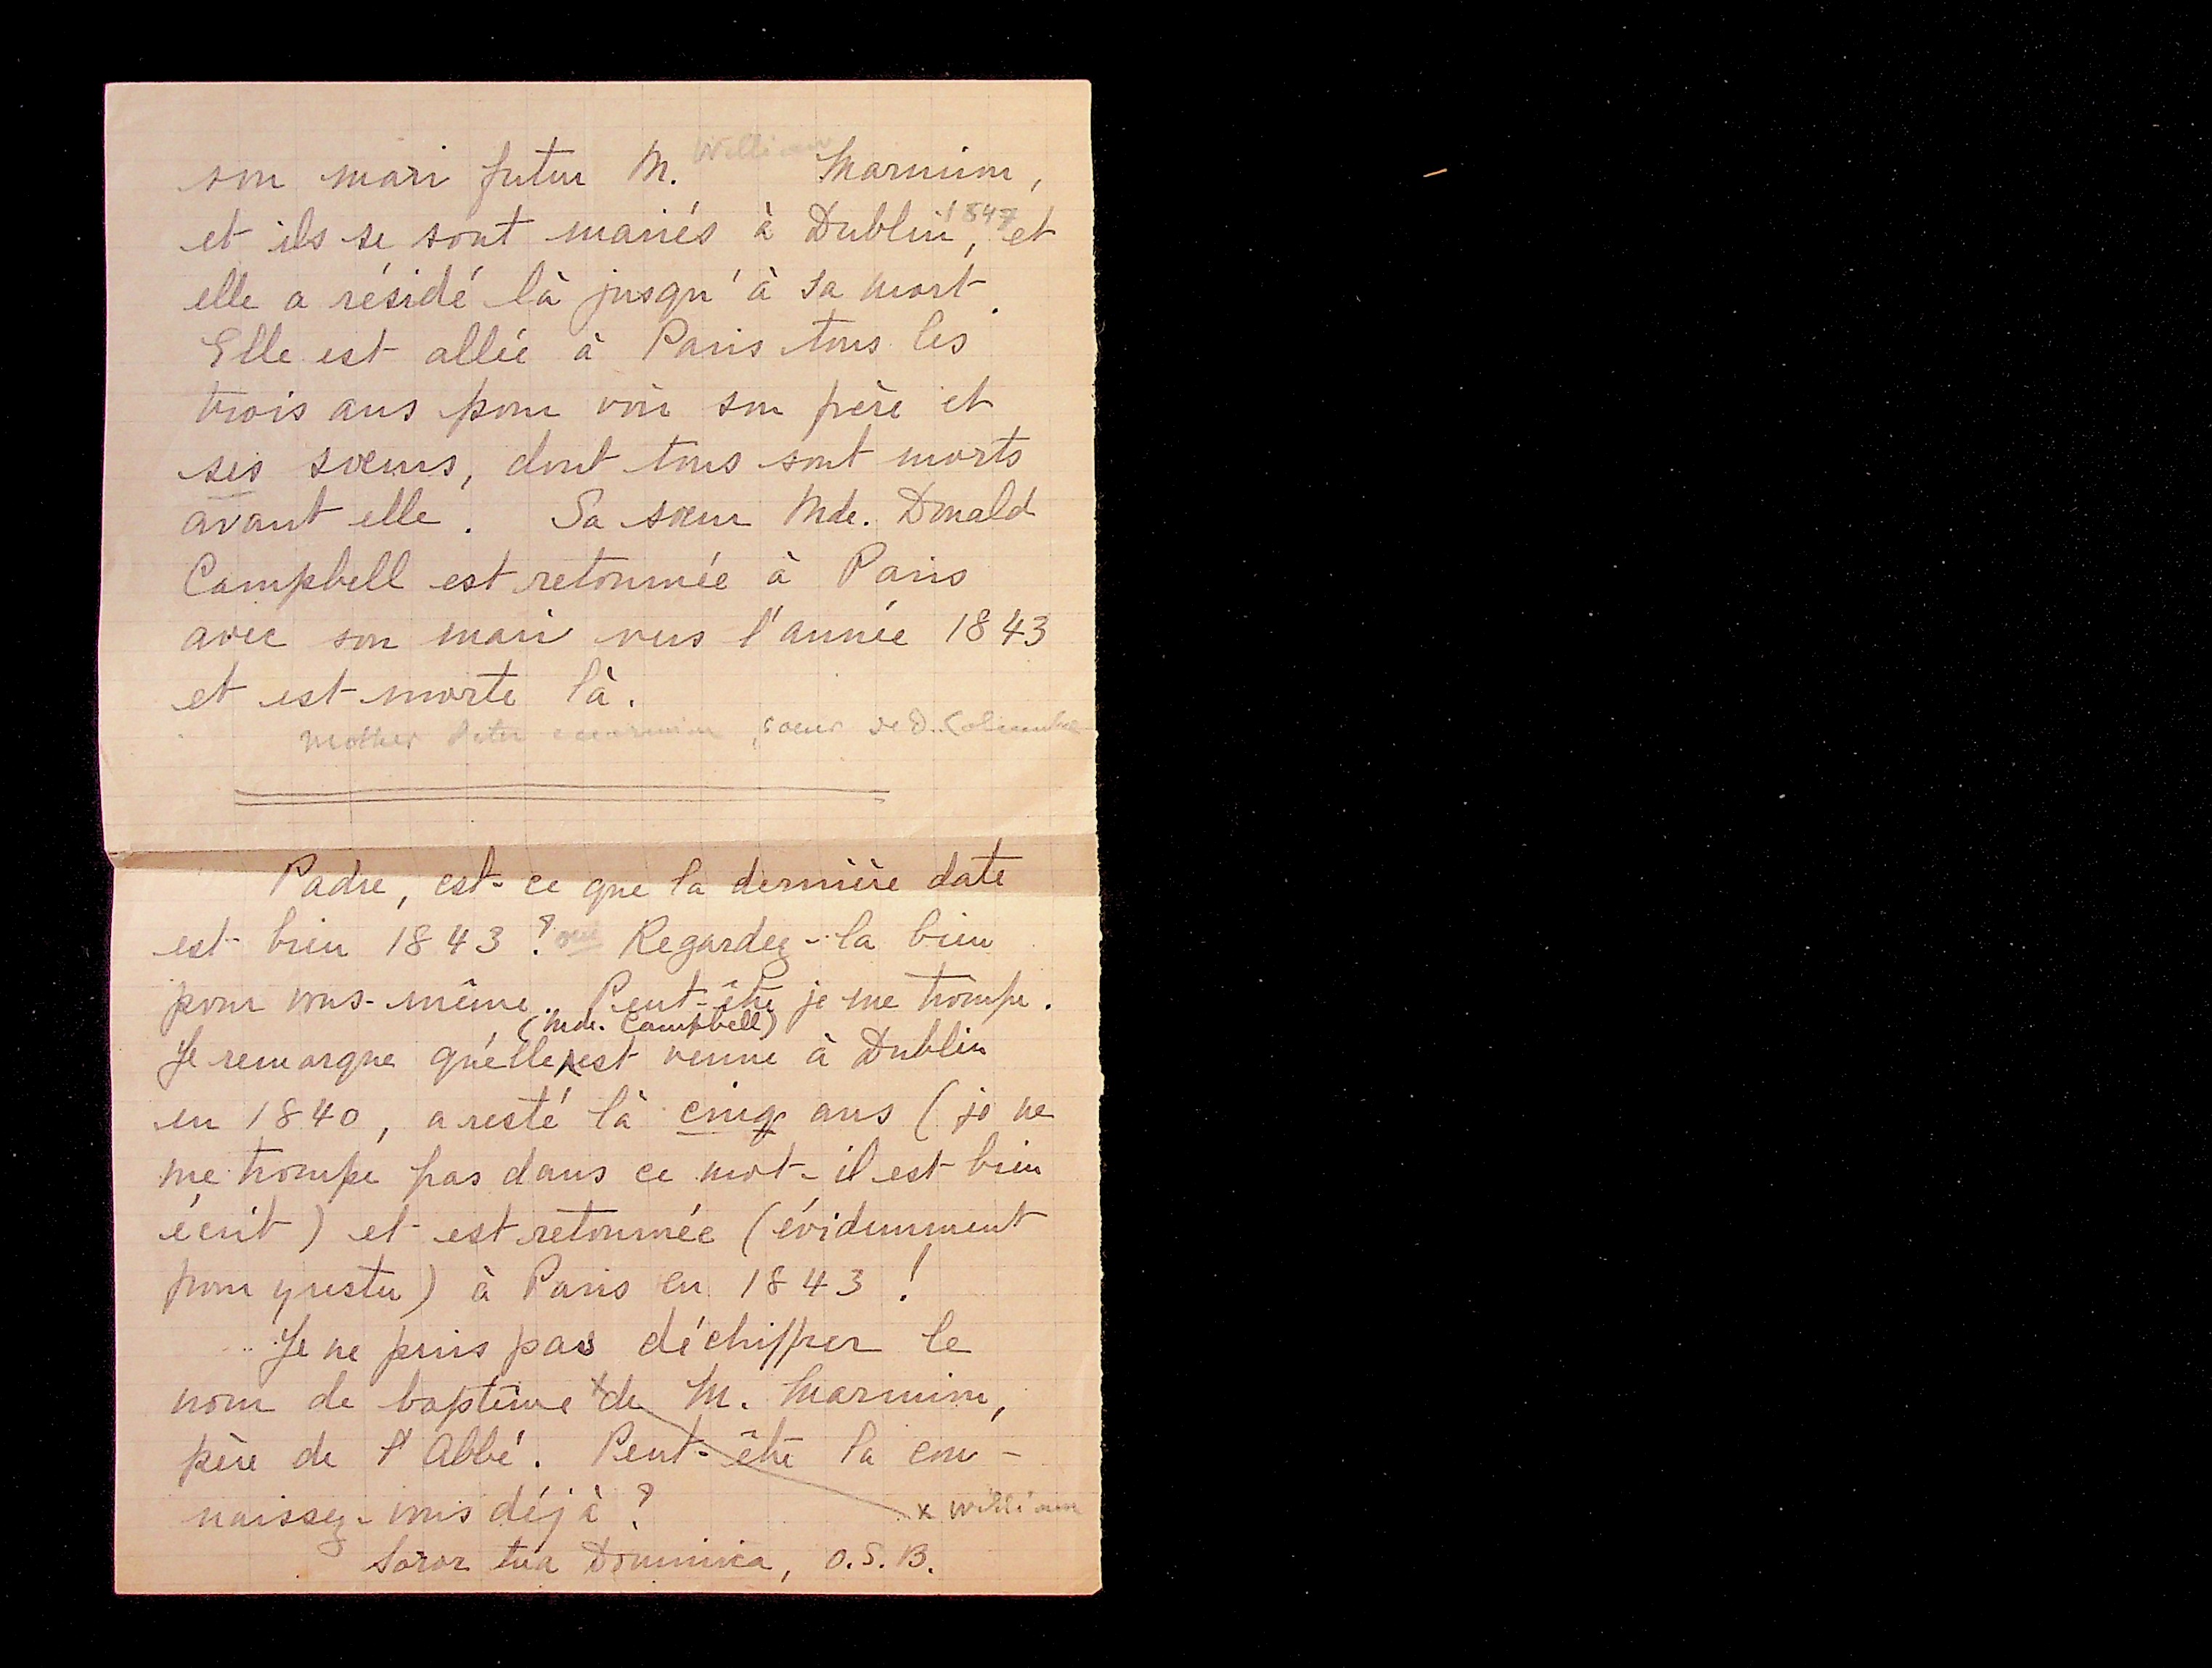 son mari futur M. William Marmion,
et ils se sont mariés à Dublin, 1847 et
elle a résidé là jusqu'à sa mort.
Elle est allée à Paris tous les
trois ans pour voir son père et
ses sœurs, dont tous sont morts
avant elle. Sa sœur Mde. Donald
Campbell est retournée à Paris
avec son mari vers l'année 1843
et est morte là.
Mother Peter Marmion, soeur de D. Columba
Padre, est-ce que la dernière date
est bien 1843? oui Regardez-la bien
pour vous-même. Peut-être je me trompe.
(Mde. Campbell)
Je remarque qu'elle est venue à Dublin
en 1840, a resté là cinq ans (je ne
me trompe pas dans ce mot - il est bien
écrit) et est retournée (évidemment
pour y rester) à Paris en 1843!
Je ne puis pas déchiffrer le
nom de baptême x de M. Marmion,
père de l'Abbé. Peut-être la con-
naissez-vous déjà?
x William
Soror tua Dominica, O.S.B.